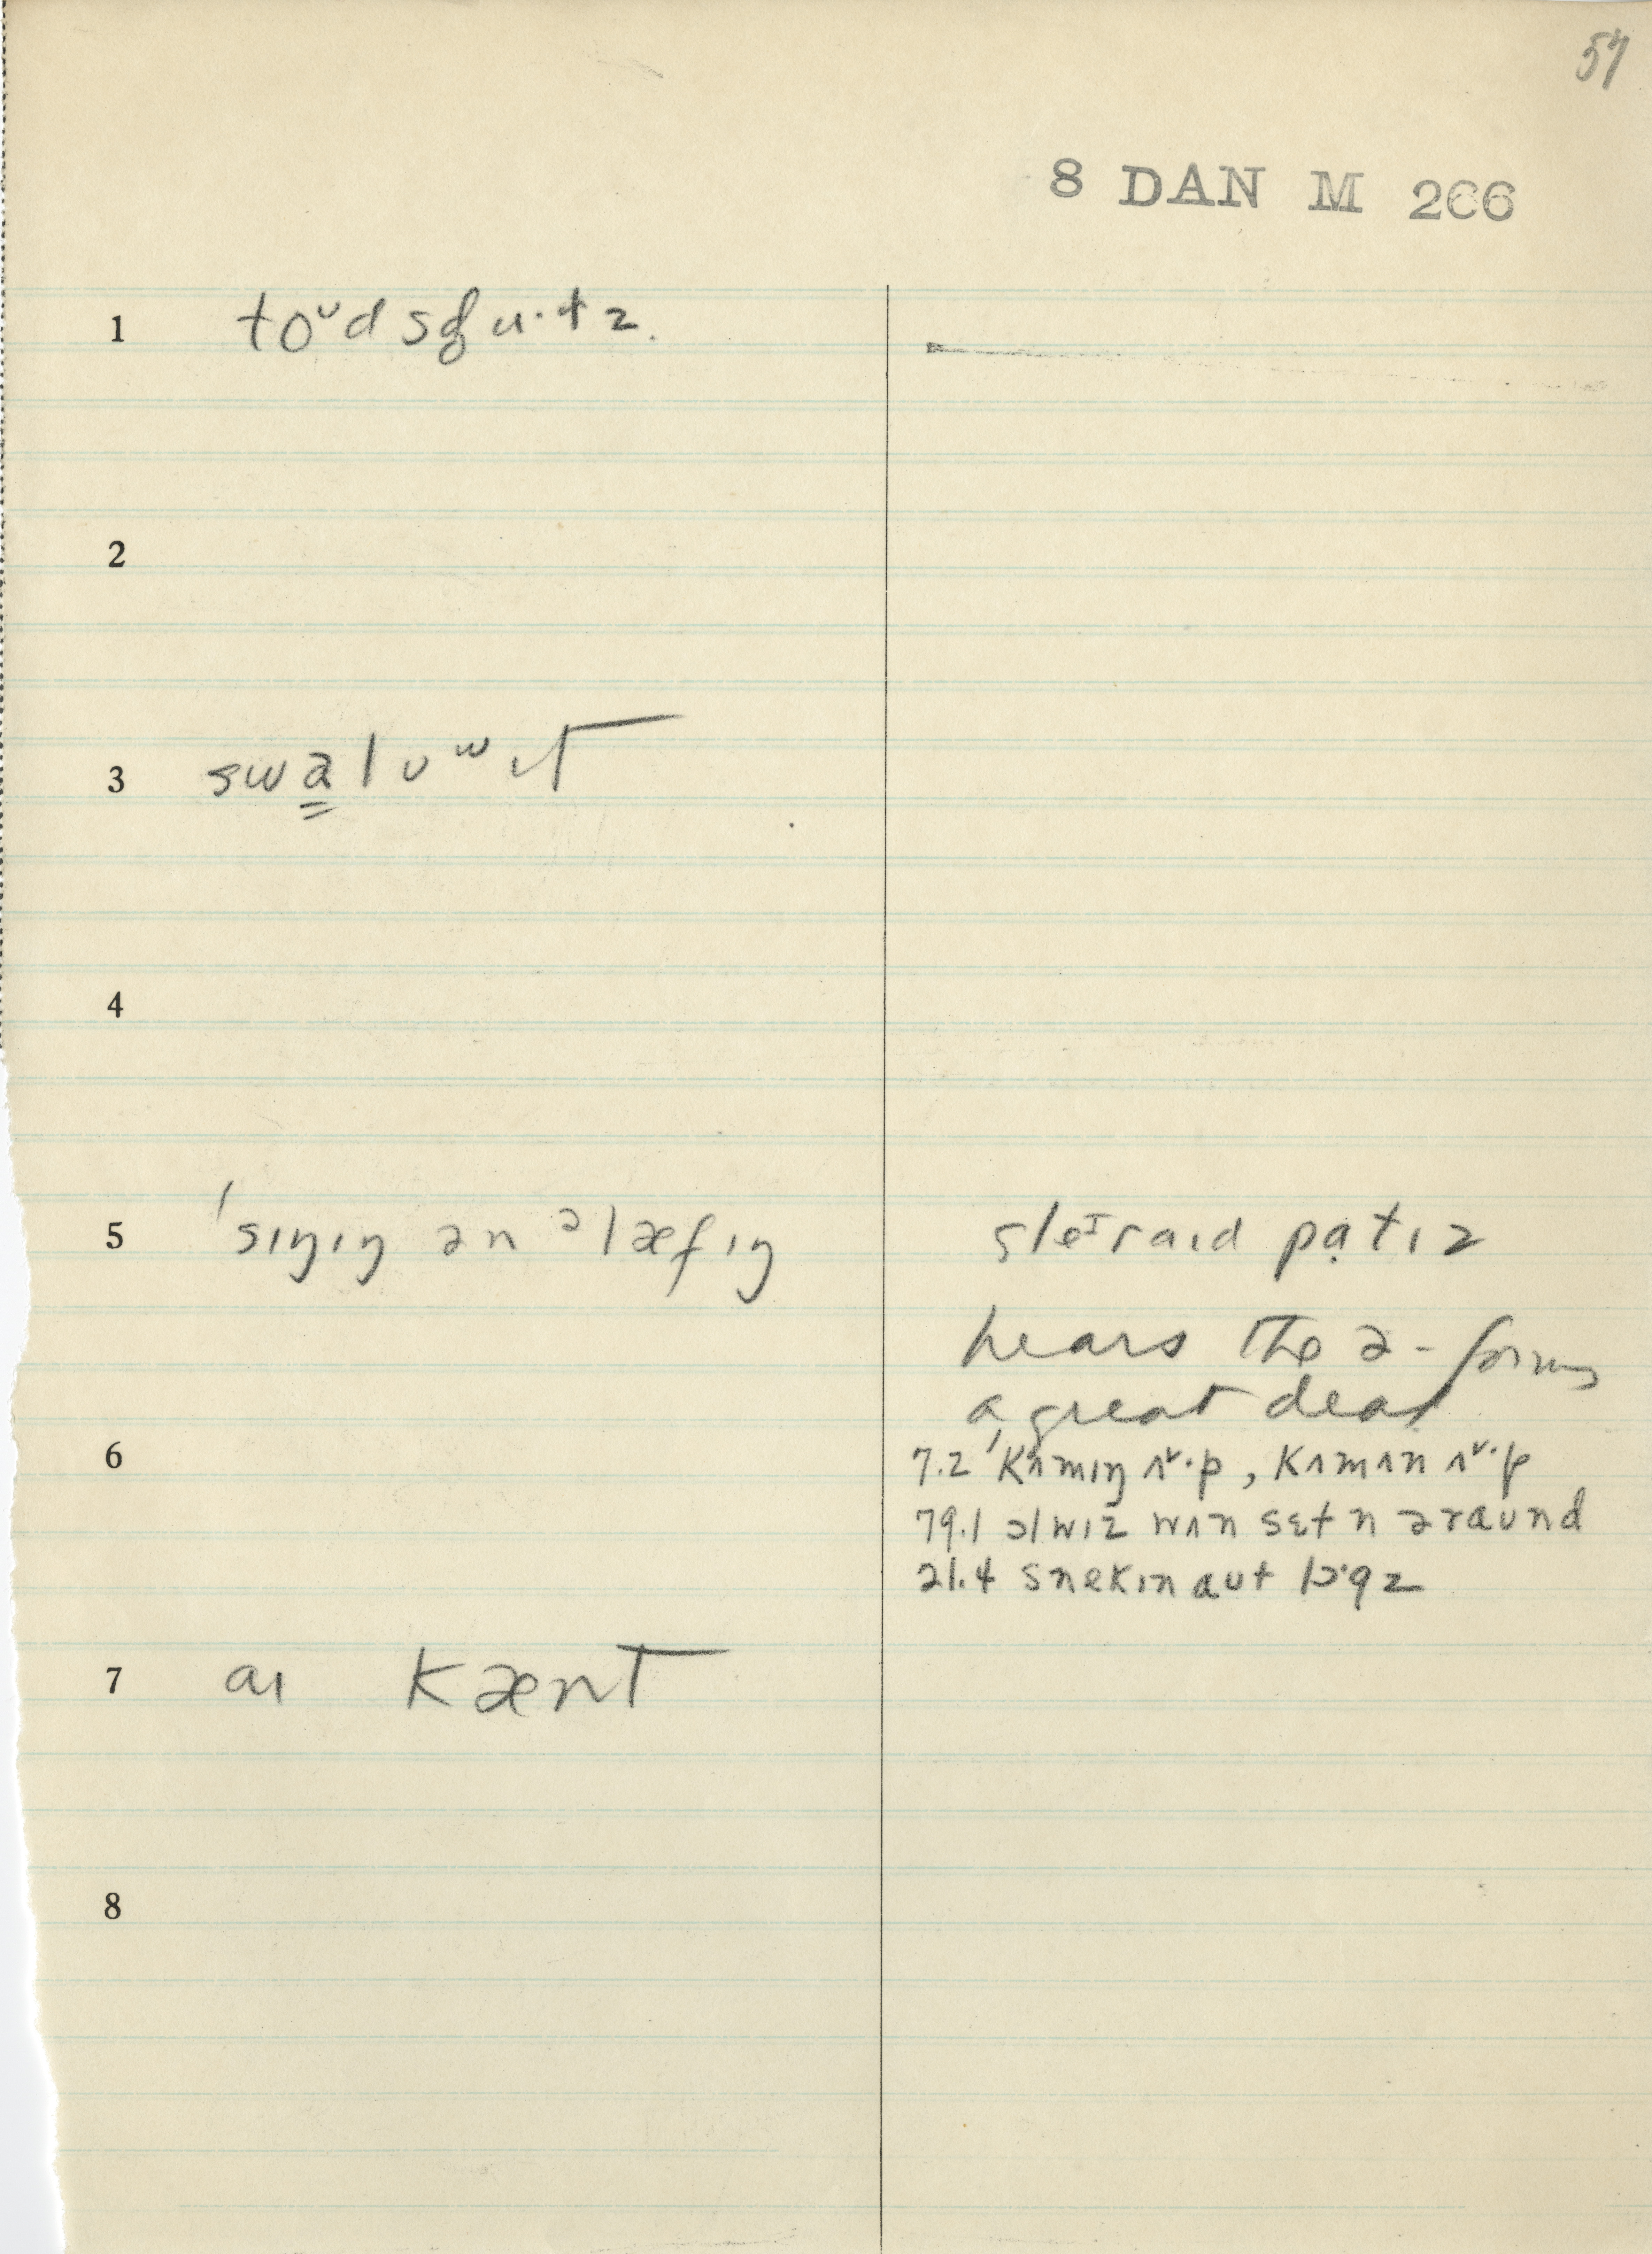 57
8 DAN M 206
1 toᶷd sɡu·tz.
2
3 swa̳lʊʷɪt
4
5 ˈsɪŋɪŋ ən ᵊlæfɪŋ
sleᴵraɪd pạtɪz
hears the ə- forms
a great deal
6
7.2 ˈkʌmɪŋ ʌᵛ·p, kʌmən ʌᵛ·p
79.1 ɔlwɪz wʌn sɛtn əraʊnd
21.4 snekɪn aʊt lɒ·gz
7 aɪ kænt
8